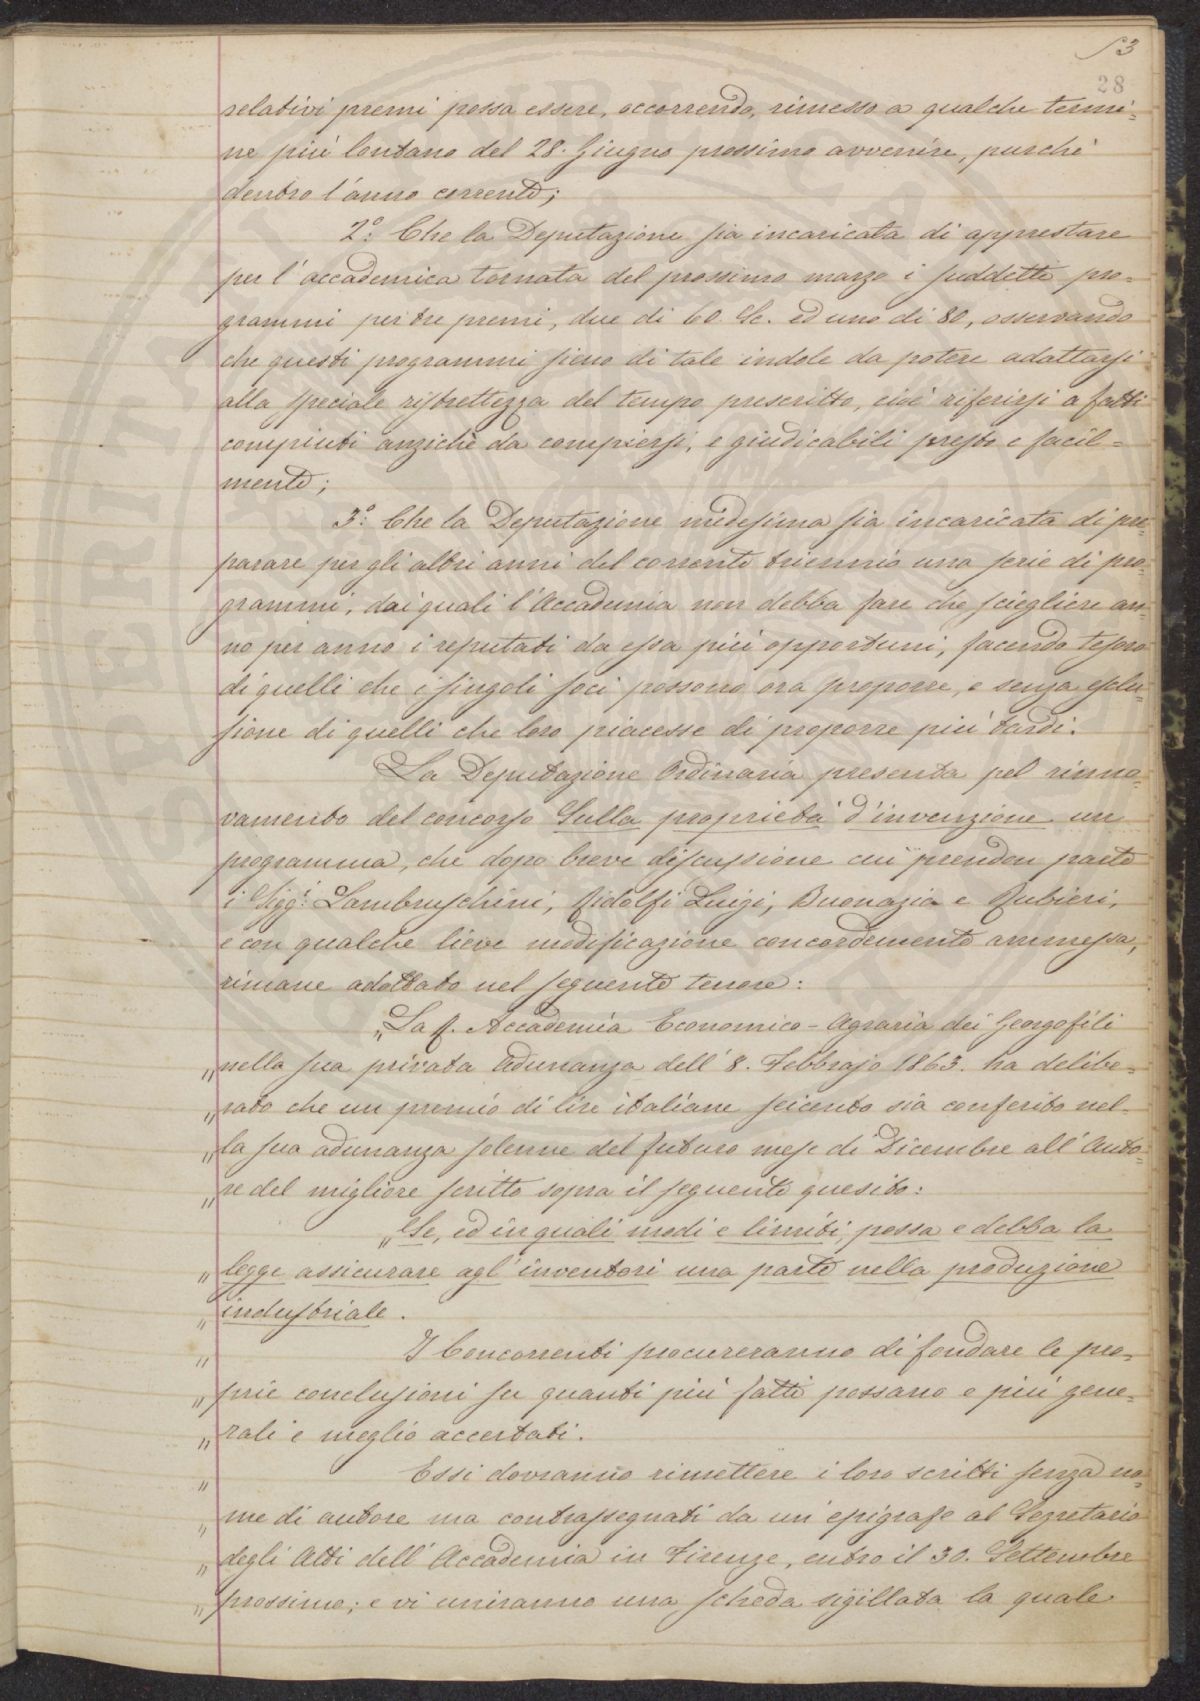 53
28
relativi premi possa essere, occorrendo, rimesso a qualche termi=
ne più lontano del 28. Giugno prossimo avvenire, purchè
dentro l'anno corrente;
2.° Che la Deputazione sia incaricata di apprestare
per l'accademica tornata del prossimo marzo i suddetti pro=
grammi per tre premi, due di 60 Sc. ed uno di 80, osservando
che questi programmi sieno di tale indole da potere adattarsi
alla speciale ristrettezza del tempo prescritto, cioè riferirsi a fatti
compiuti anzichè da compiersi, e giudicabili presto e facil=
mente;
3.° Che la Deputazione medesima sia incaricata di pre=
parare per gli altri anni del corrente triennio una serie di pro=
grammi, dai quali l'Accademia non debba fare che sciegliere an=
no per anno i reputati da essa più opportuni, facendo tesoro
di quelli che i singoli soci possono ora proporre, e senza esclu=
sione di quelli che loro piacesse di proporre più tardi.
La Deputazione Ordinaria presenta pel rinno=
vamento del concorso Sulla proprietà d'invenzione un
programma, che dopo breve discussione cui prendon parte
i Sigg.i Lambruschini, Ridolfi Luigi, Buonazia e Rubieri,
e con qualche lieve modificazione concordemente ammessa,
rimane adottato nel seguente tenore:
„La R. Accademia Economico-Agraria dei Georgofili
„nella sua privata adunanza dell'8. Febbrajo 1863. ha delibe=
„rato che un premio di lire italiane seicento sia conferito nel=
„la sua adunanza solenne del futuro mese di Dicembre all'Auto=
„re del migliore scritto sopra il seguente quesito:
„Se, ed in quali modi e limiti, possa e debba la
„legge assicurare agl'inventori una parte nella produzione
„industriale.
„ I Concorrenti procureranno di fondare le pro=
„prie conclusioni su quanti più fatti possano e più gene=
„rali e meglio accertati.
„ Essi dovranno rimettere i loro scritti senza no=
„me di autore ma contrassegnati da un'epigrafe al Segretario
„degli Atti dell'Accademia in Firenze, entro il 30. Settembre
„prossimo; e vi uniranno una scheda sigillata la quale